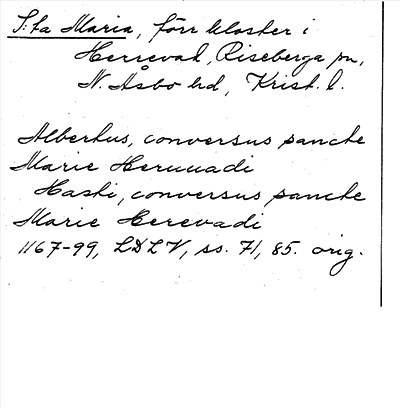 S:ta Maria, förr kloster i
Herrevad, Riseberga sn,
N. Åsbo hd, Krist. l.
Albertus, conversus sancte
Marie Heruuadi
Haski, conversus sancte
Marie Herevadi
1167-99, LDLV, ss. 71, 85. orig.